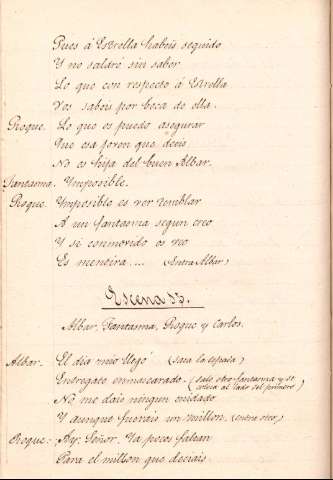 Pues á Estrella habeis seguido
Y no saldré sin saber
Lo que con respecto á Estrella
Vos sabeis por boca de ella.
Roque. Lo que os puedo asegurar
Que esa joven que decis
No es hija del buen Albar.
Fantasma. Ymposible.
Roque. Ymposible es ver temblar
A un fantasma segun creo
Y si conmovido os veo
Es mentira.... (Entra Albar)
Escena 13.
Albar, Fantasma, Roque y Carlos.
Albar. El dia mio llegó (saca la espada)
Entregate enmascarado. (sale otro fantasma y se
coloca al lado del primero)
No me dais ningun cuidado
Y aunque fuerais un millon. (entra otro)
Roque: Ay! Señor. Ya pocos faltan
Para el millon que deciais.